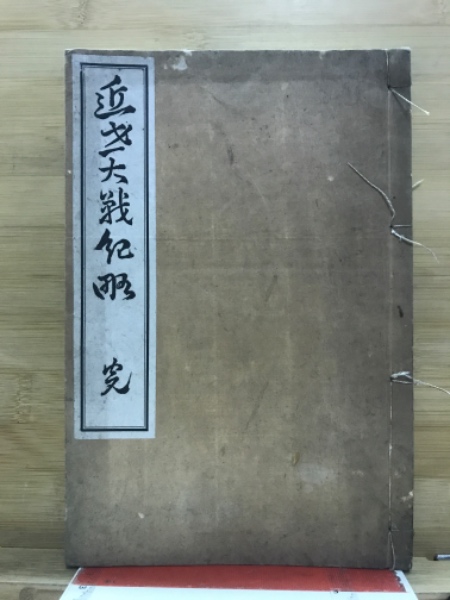 近世大戦紀略 完